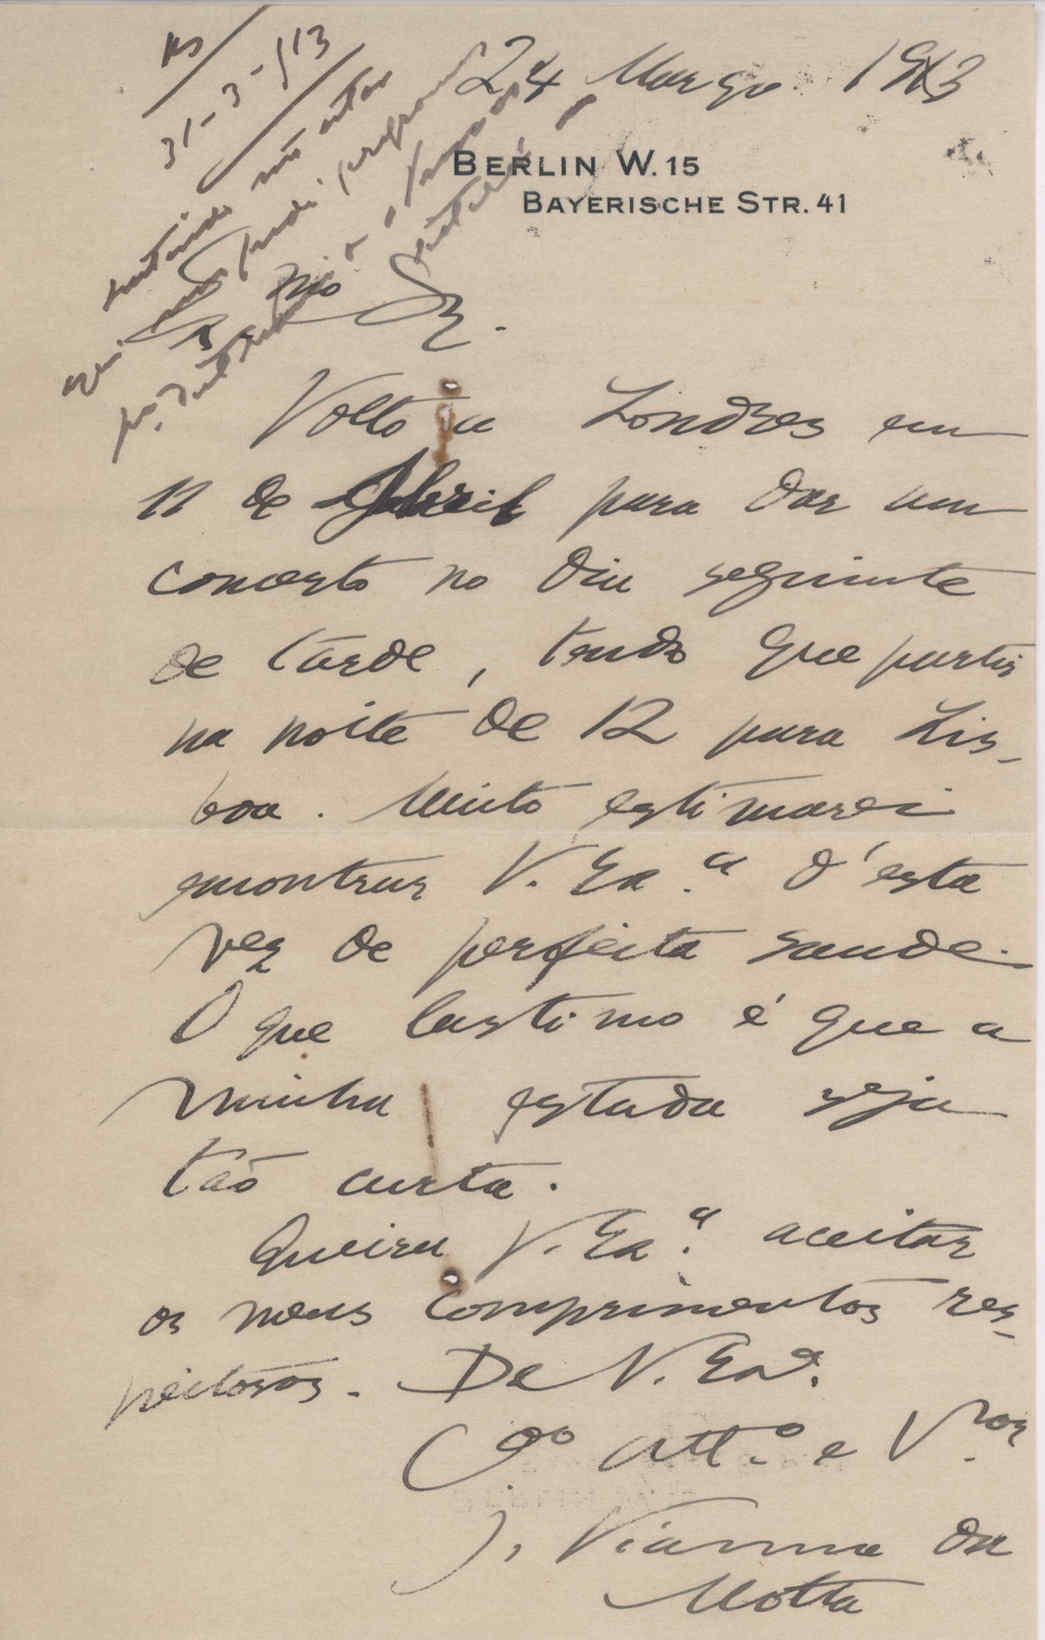 24 Março 1913
BERLIN W. 15
BAYERISCHE STR. 41
Rs
31-3-913
não estar
Exmo Sr.
Volto a Londres em
11 de Abril para dar um
concerto no dia seguinte
de tarde, tendo que partir
na noite de 12 para Lis-
boa. Muito estimarei
encontrar V. Exa. d'esta
vez de perfeita saude.
O que lastimo é que a
minha estada seja
tão curta.
Queira V. Exa. aceitar
os meus comprimentos res-
peitosos. De V. Exa.
Cdo. Atto. e Vor.
J. Vianna da
Motta